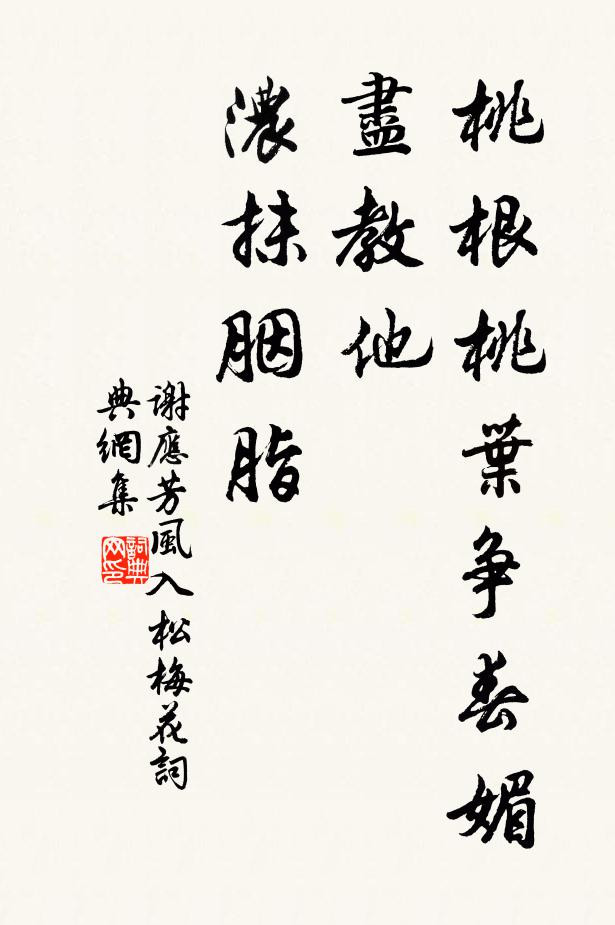 桃根桃葉争春媚
盡教他
濃抹胭脂
謝應芳風入松梅花詞
典網集
詞典网印